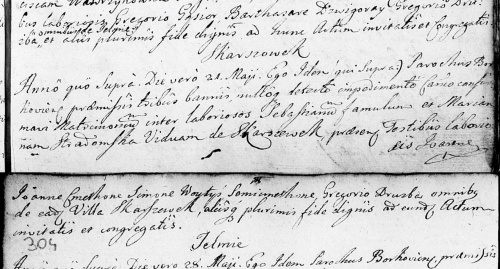 bus laboriosis Gregorio Gąsior, Barthasare Dzwigoray, Gregorio Dru-
zba, et aliis plurimis fide dignis ad hunc Actum invitatis et Congregatis
Skarszowek
Anno quo Supra. Die vero 21. Maji. Ego Idem (qui Supra) Parochus Bor-
koviens, praemissis tribus bannis, nulloq detecto impedimento Canonico
Matrimonium inter laboriosos Sebastianum famulum et Marian-
nam Viduam de Skarszewek, praesent Testibus laborio-
sis
Joanne Cmethone Simone Woytys Semicmethone, Gregorio Druzba omnibq
de ead Villa Skarszewek, aliisq plurimis fide dignis ad eund Actum
invitatis et congregatis.
304
Jelmie
Anno quo Supra. Die vero 28. Maji. Ego Idem Parochus Borkoviens, praemissis